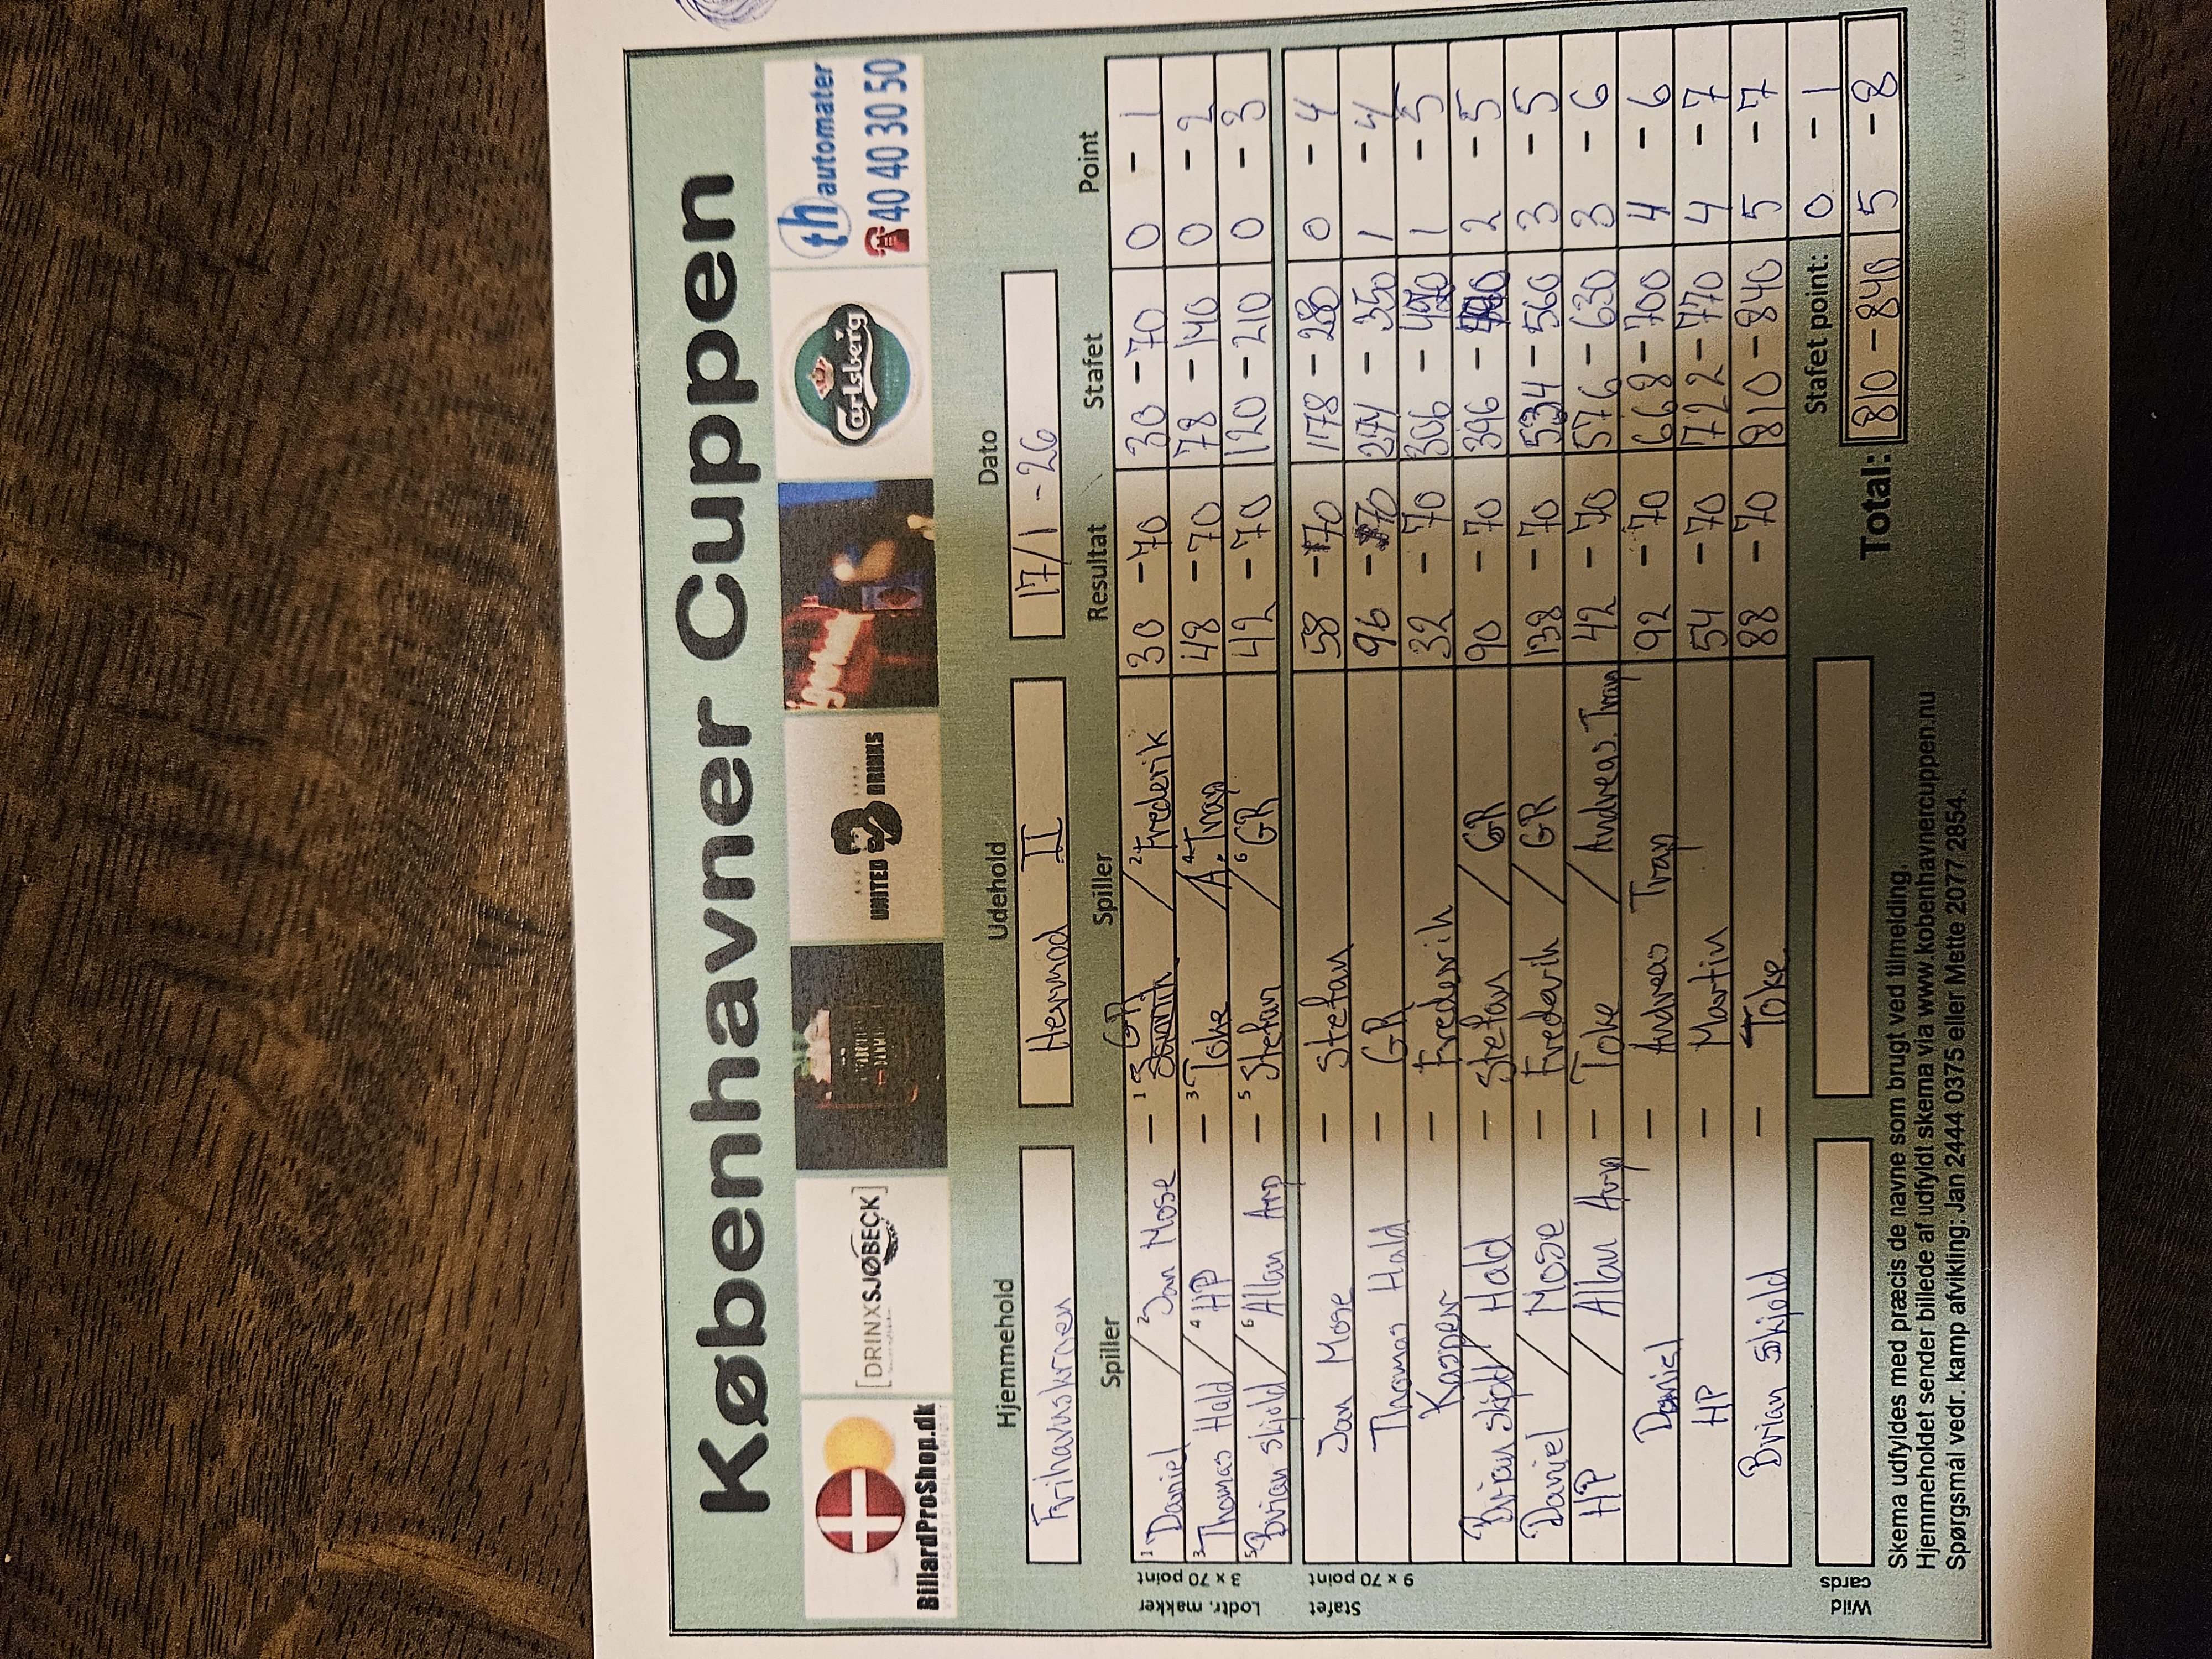 Københavner Cuppen
BillardProShop.dk
VI TAGER DIT SPIL SERIØST
[DRINXSJØBECK]
UNITED DRINKS
Carlsberg
th automater
40 40 30 50
Hjemmehold Udehold Dato
Frihavnskroen Hermod II 17/1 - 26
Spiller Spiller Resultat Stafet Point
Lodtr. makker 3 x 70 point
1 Daniel / 2 Jan Mose - 1 GR / 2 Frederik 30 - 70 30 - 70 0 - 1
3 Thomas Hald / 4 HP - 3 Toke / 4 A. Trap 48 - 70 78 - 140 0 - 2
5 Brian Skjold / 6 Allan Arp - 5 Stefan / 6 GR 42 - 70 120 - 210 0 - 3
Stafet 9 x 70 point
Jan Mose - Stefan 58 - 70 178 - 280 0 - 4
Thomas Hald - GR 96 - 70 274 - 350 1 - 4
Kasper - Frederik 32 - 70 306 - 420 1 - 5
Brian Skjold / Hald - Stefan / GR 90 - 70 396 - 490 2 - 5
Daniel / Mose - Frederik / GR 138 - 70 534 - 560 3 - 5
HP / Allan Arp - Toke / Andreas Trap 42 - 70 576 - 630 3 - 6
Daniel - Andreas Trap 92 - 70 668 - 700 4 - 6
HP - Martin 54 - 70 722 - 770 4 - 7
Brian Skjold - Toke 88 - 70 810 - 840 5 - 7
Wild cards Stafet point: 0 - 1
Total: 810 - 840 5 - 8
Skema udfyldes med præcis de navne som brugt ved tilmelding.
Hjemmeholdet sender billede af udfyldt skema via www.københavnercuppen.nu
Spørgsmål vedr. kamp afvikling: Jan 2444 0375 eller Mette 2077 2854.